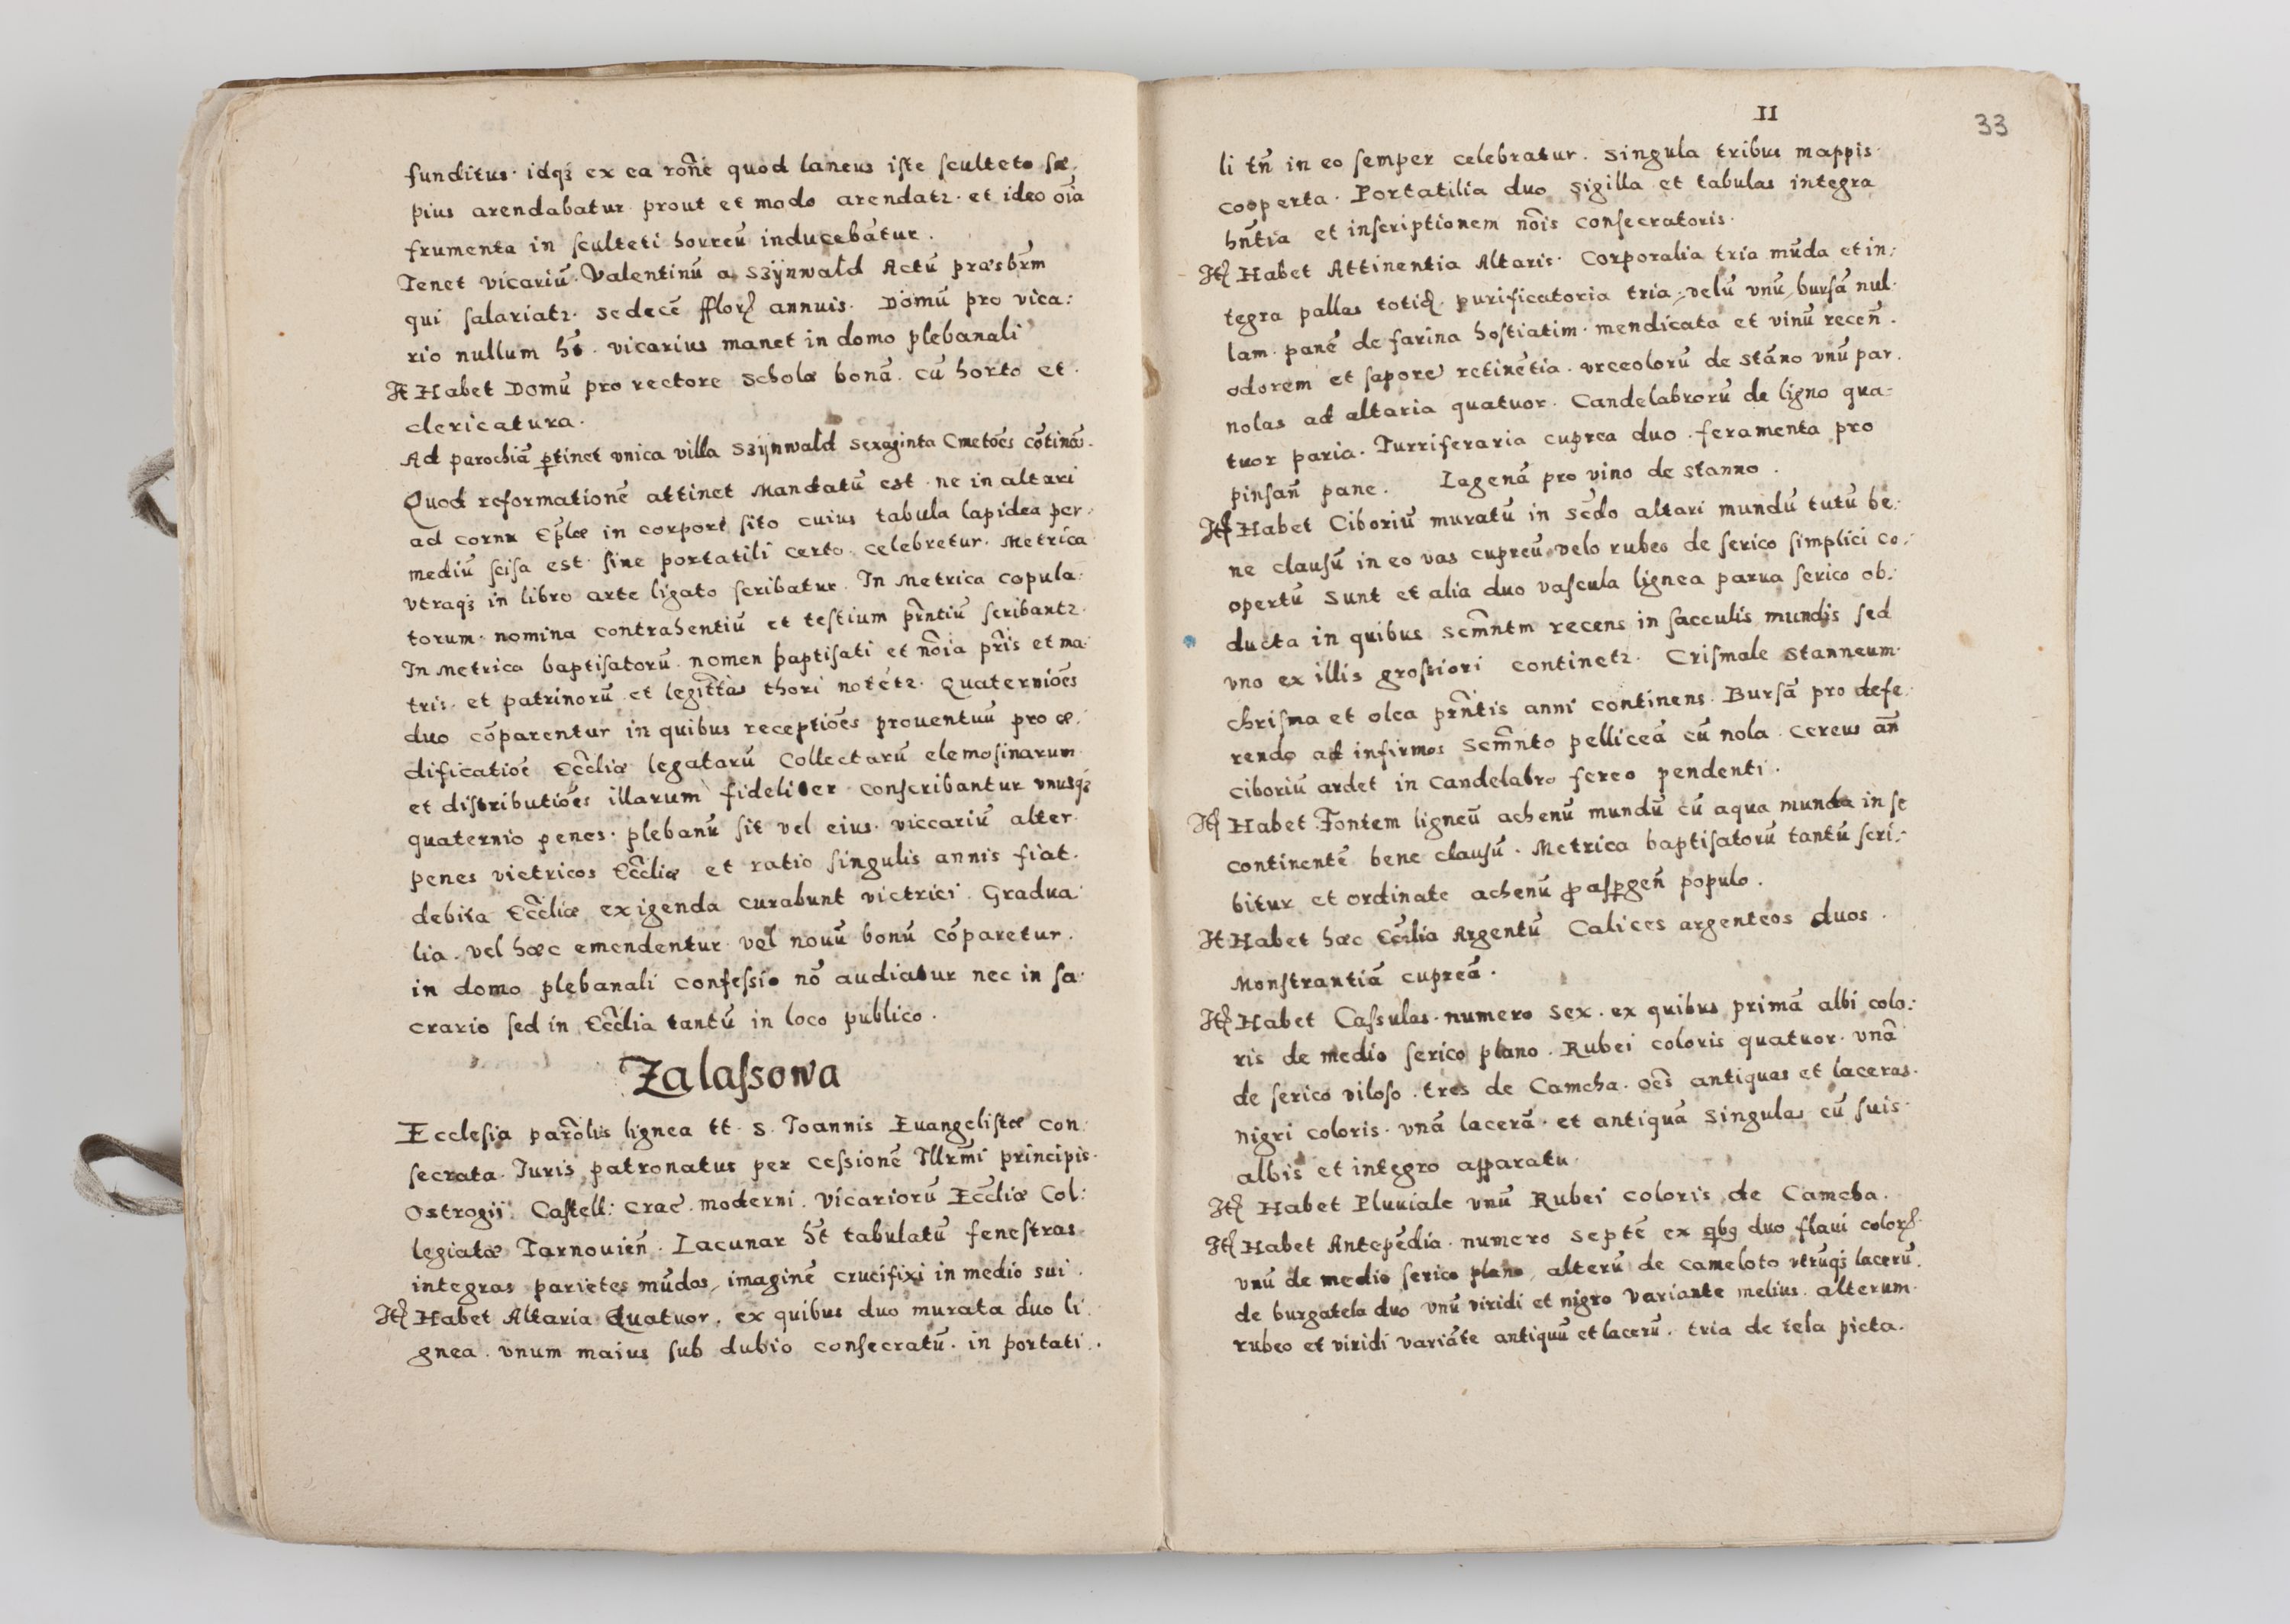 funditus. idqȝ ex ea rõne quod laneus iste sculteto sæ.
pius arendabatur prout et modo arendatz. et ideo oĩa
frumenta in sculteti horreũ inducebatur.
Tenet vicariũ Valentinũ a Szÿnwald Actũ præsbr̃m
qui salariatz. sedecẽ fflorꝭ annuis. Domũ pro vica:
rio nullum ht̃. vicarius manet in domo plebanali
It Habet Domũ pro rectore Scholæ bonã. cũ horto et.
clericatura.
Ad parochiã ꝑtinet vnica villa Szÿnwald sexaginta Cmetões cõtinẽs.
Quod reformationẽ attinet Mandatũ est. ne in altari
ad cornu Ep̃læ in corpore sito cuius tabula lapidea per.
mediũ scisa est. sine portatili certo. celebretur. Metrica
vtraqȝ in libro arte ligato scribatur. In Metrica copula:
torum. nomina contrahentiũ et testium pr̃ntiũ scribantz.
In Metrica baptisatorũ. nomen baptisati et nõia pr̃is et ma:
tris. et patrinorũ et legitt̃as thori notẽtz. Quaterniões
duo cõparentur in quibus receptiões prouentuũ pro æ.
dificatiõe Eccl̃iæ legatarũ Collectarũ elemosinarum
et distributiões illarum fideliter conscribantur vnusqȝ
quaternio penes. plebanũ sit vel eius. viccariũ alter
penes vietricos Eccl̃iæ et ratio singulis annis fiat.
debita Eccl̃iæ exigenda curabunt victrici. Gradua:
lia. vel hæc emendentur vel nouũ bonũ cõparetur.
in domo plebanali confessio nõ audiatur nec in sa:
crario sed in Eccl̃ia tantũ in loco publico.
Zalassowa
Ecclesia parõlis lignea tt. S. Joannis Euangelistæ con:
secrata. Juris patronatus per cessionẽ Illr̃mi principis.
Ostrogii. Castell: Crac̃. moderni. vicariorũ Eccl̃iæ Col:
legiatæ Tarnouieñ. Lacunar ht̃ tabulatũ fenestras
integras parietes mũdos, imaginẽ crucifixi in medio sui.
Itꝭ Habet Altaria Quatuor. ex quibus duo murata duo li.
gnea. vnum maius sub dubio consecratũ. in portati.
II
33
li tñ in eo semper celebratur. Singula tribus mappis.
cooperta. Portatilia duo sigilla et tabulas integra
hñtia et inscriptionem nõis consecratoris.
Itꝭ Habet Attinentia Altaris. Corporalia tria mũda et in:
tegra pallas totiđ. purificatoria tria, velũ vnũ, bursã nul.
lam. panẽ de farina hostiatim. mendicata et vinũ receñ.
odorem et saporẽ retinẽtia. vrceolorũ de stãno vnũ par.
nolas ad altaria quatuor. Candelabrorũ de ligno qua:
tuor paria. Turriferaria cuprea duo. feramenta pro
pinsañ pane. Lagenã pro vino de stanno.
Itꝭ Habet Ciboriũ muratũ in sẽdo altari mundũ tutũ be:
ne clausũ in eo vas cupreũ velo rubeo de serico simplici co:
opertũ sunt et alia duo vascula lignea parua serico ob:
ducta in quibus scm̃ntm recens in sacculis mundis sed
vno ex illis grossiori continetz. Crismale stanneum.
chrisma et olea pr̃ntis anni continens. Bursã pro defe.
rendo ad infirmos scm̃nto pelliceã cũ nola. cereus añ
ciboriũ ardet in candelabro fereo pendenti.
Itꝭ Habet Fontem ligneũ achenũ mundũ cũ aqua munda in se
continentẽ bene clausũ. Metrica baptisatorũ tantũ scri:
bitur et ordinate achenũ ꝓ asꝑgeñ populo.
It Habet hæc Eccl̃ia Argentũ Calices argenteos duos.
Monstrantiã cupreã.
Itꝭ Habet Cassulas. numero sex. ex quibus primã albi colo:
ris de medio serico plano. Rubei coloris quatuor. vnã
de serico viloso. tres de Camcha. oẽs antiquas et laceras.
nigri coloris. vnã lacerã. et antiquã singulas cũ suis
albis et integro apparatu.
Itꝭ Habet Pluuiale vnũ Rubei coloris de Camcha.
Itꝭ Habet Antepẽdia. numero septẽ ex qbꝯ duo flaui colorꝭ.
vnũ de medio serico plano, alterũ de cameloto vtrũqȝ lacerũ.
de burgatela duo vnũ viridi et nigro variante melius. alterum.
rubeo et viridi variãte antiquũ et lacerũ. tria de tela picta.